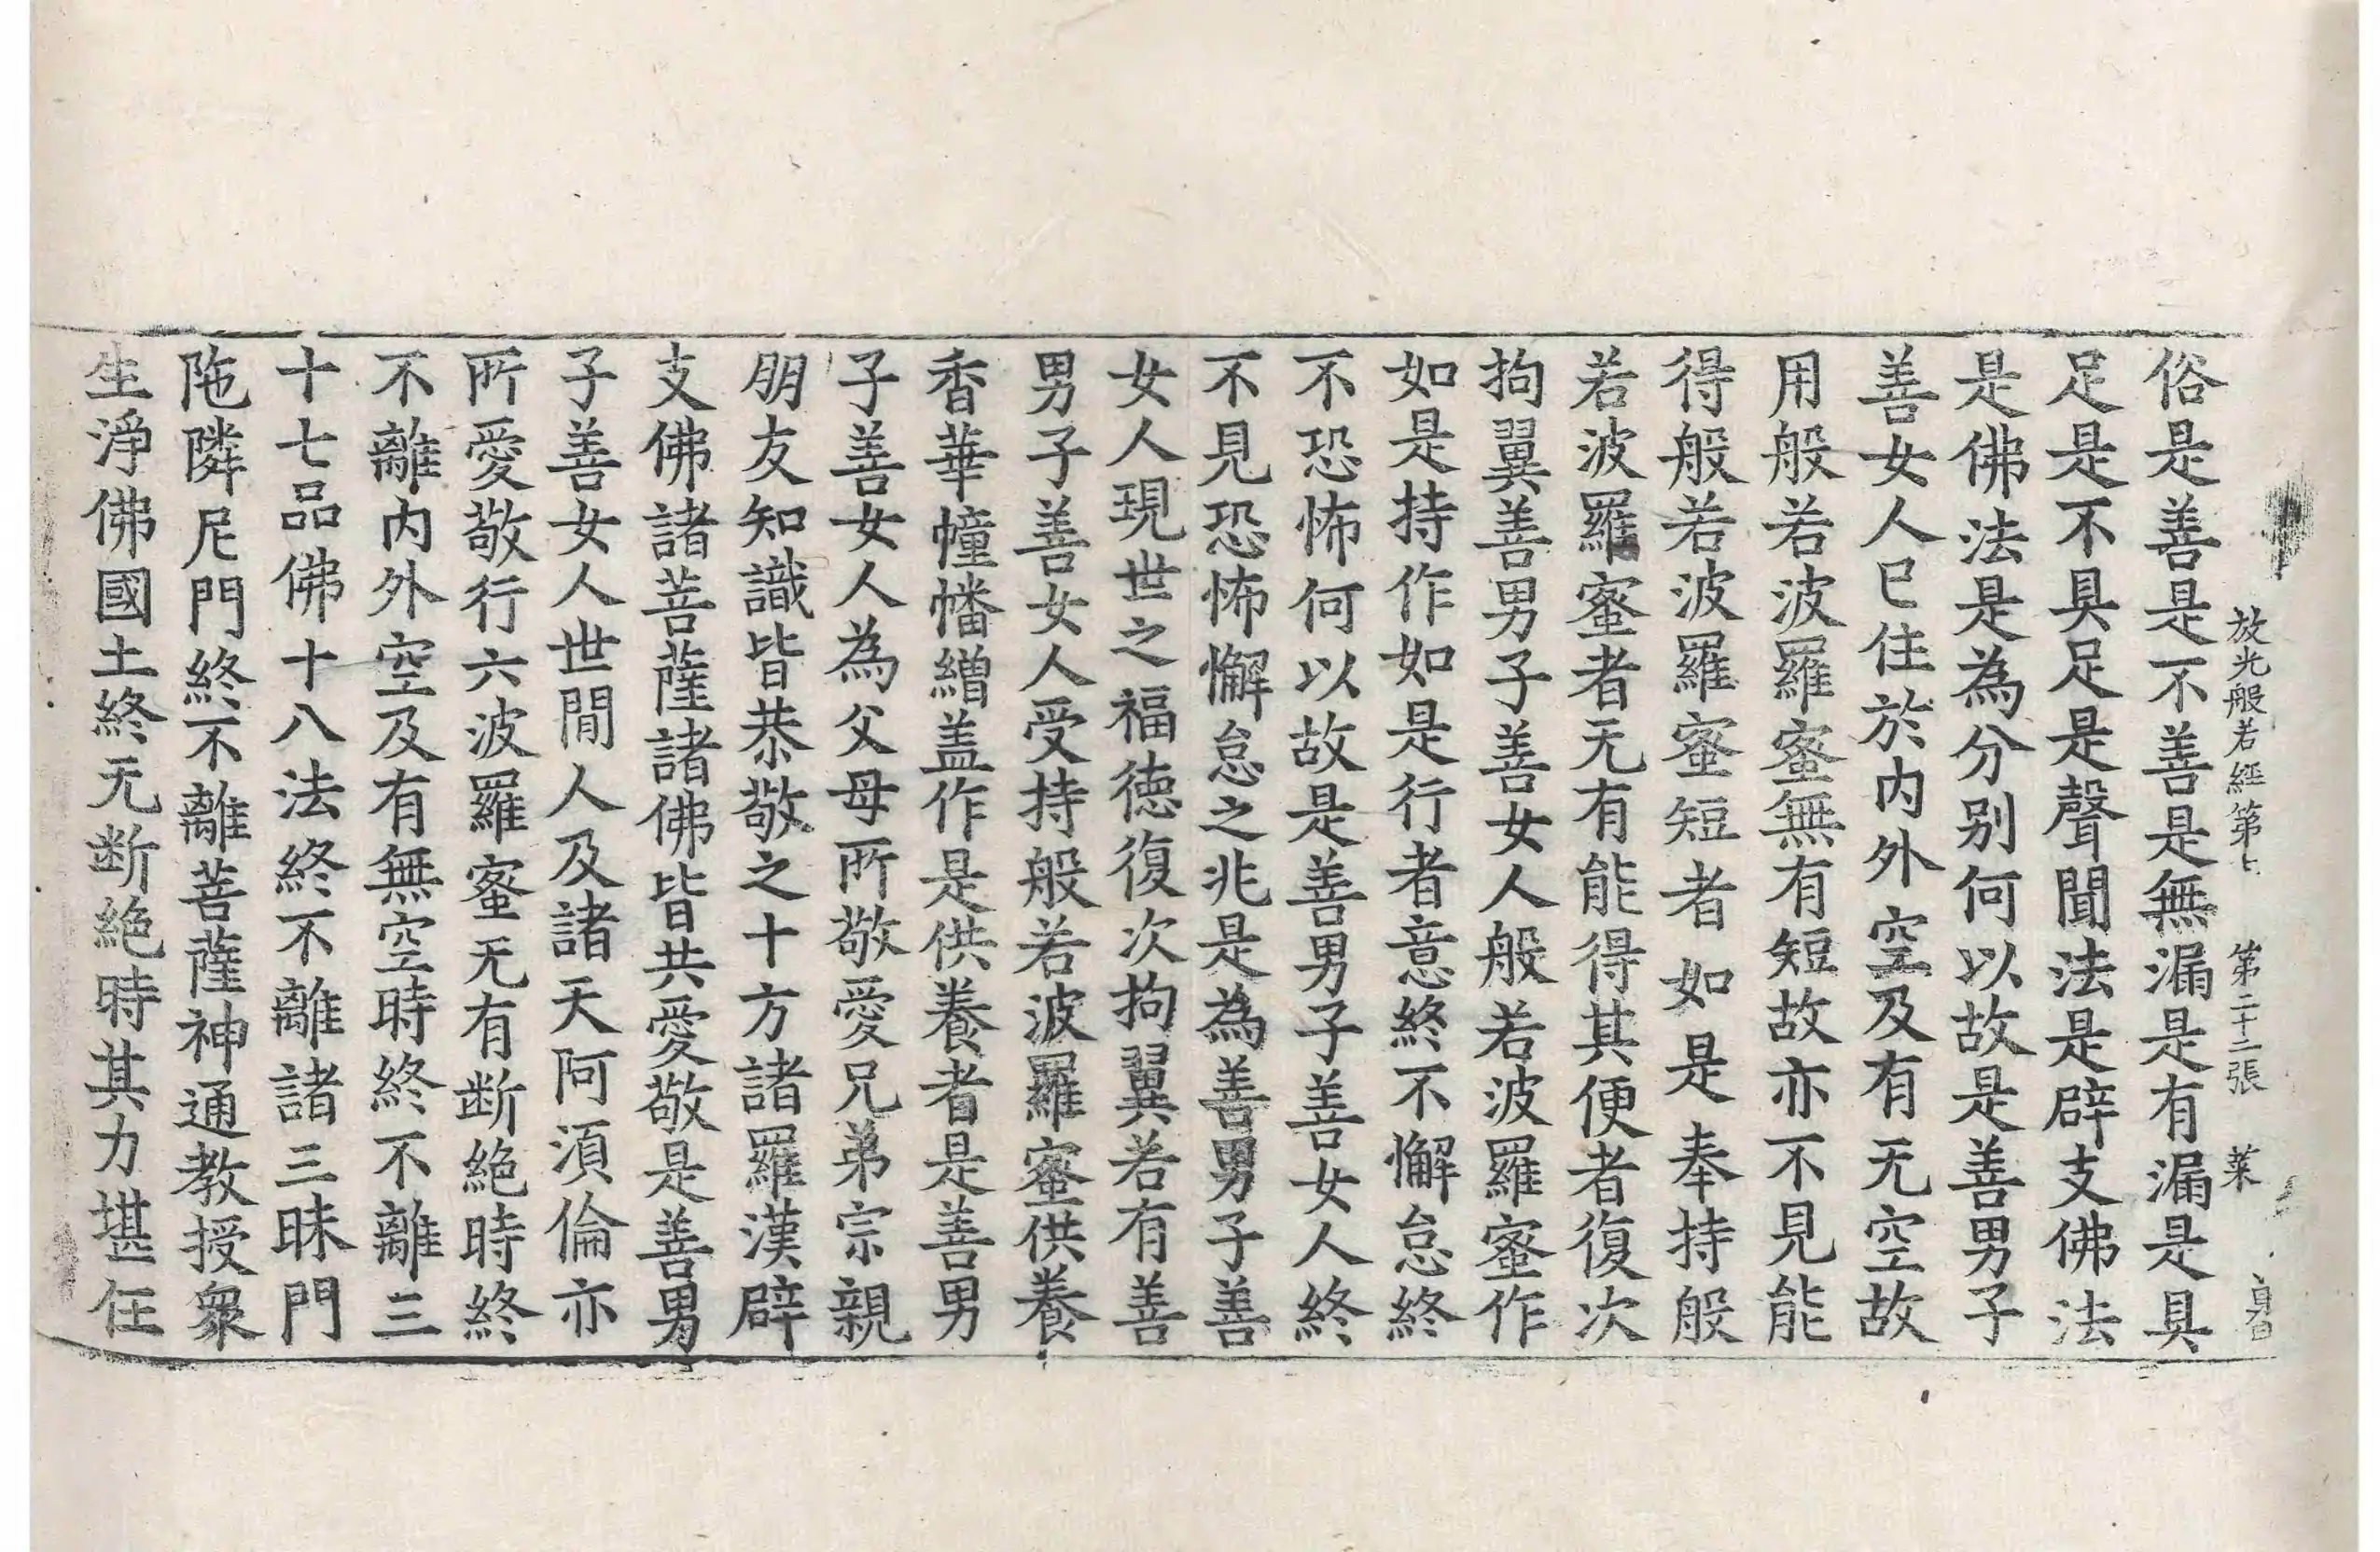 放光般若經第七　第二十二張　菜
俗是善是不善是無漏是有漏是具
足是不具足是聲聞法是辟支佛法
是佛法是為分別何以故是善男子
善女人已住於内外空及有无空故
用般若波羅蜜無有短故亦不見能
得般若波羅蜜短者如是奉持般
若波羅蜜者无有能得其便者復次
拘翼善男子善女人般若波羅蜜作
如是持作如是行者意終不懈怠終
不恐怖何以故是善男子善女人終
不見恐怖懈怠之兆是為善男子善
女人現世之福徳復次拘翼若有善
男子善女人受持般若波羅蜜供養
香華幢幡繒盖作是供養者是善男
子善女人為父母所敬愛兄弟宗親
朋友知識皆恭敬之十方諸羅漢辟
支佛諸菩薩諸佛皆共愛敬是善男
子善女人世間人及諸天阿湏倫亦
所愛敬行六波羅蜜无有断絶時終
不離内外空及有無空時終不離三
十七品佛十八法終不離諸三昧門
陁隣尼門終不離菩薩神通教授衆
生淨佛國土終无断絶時其力堪任